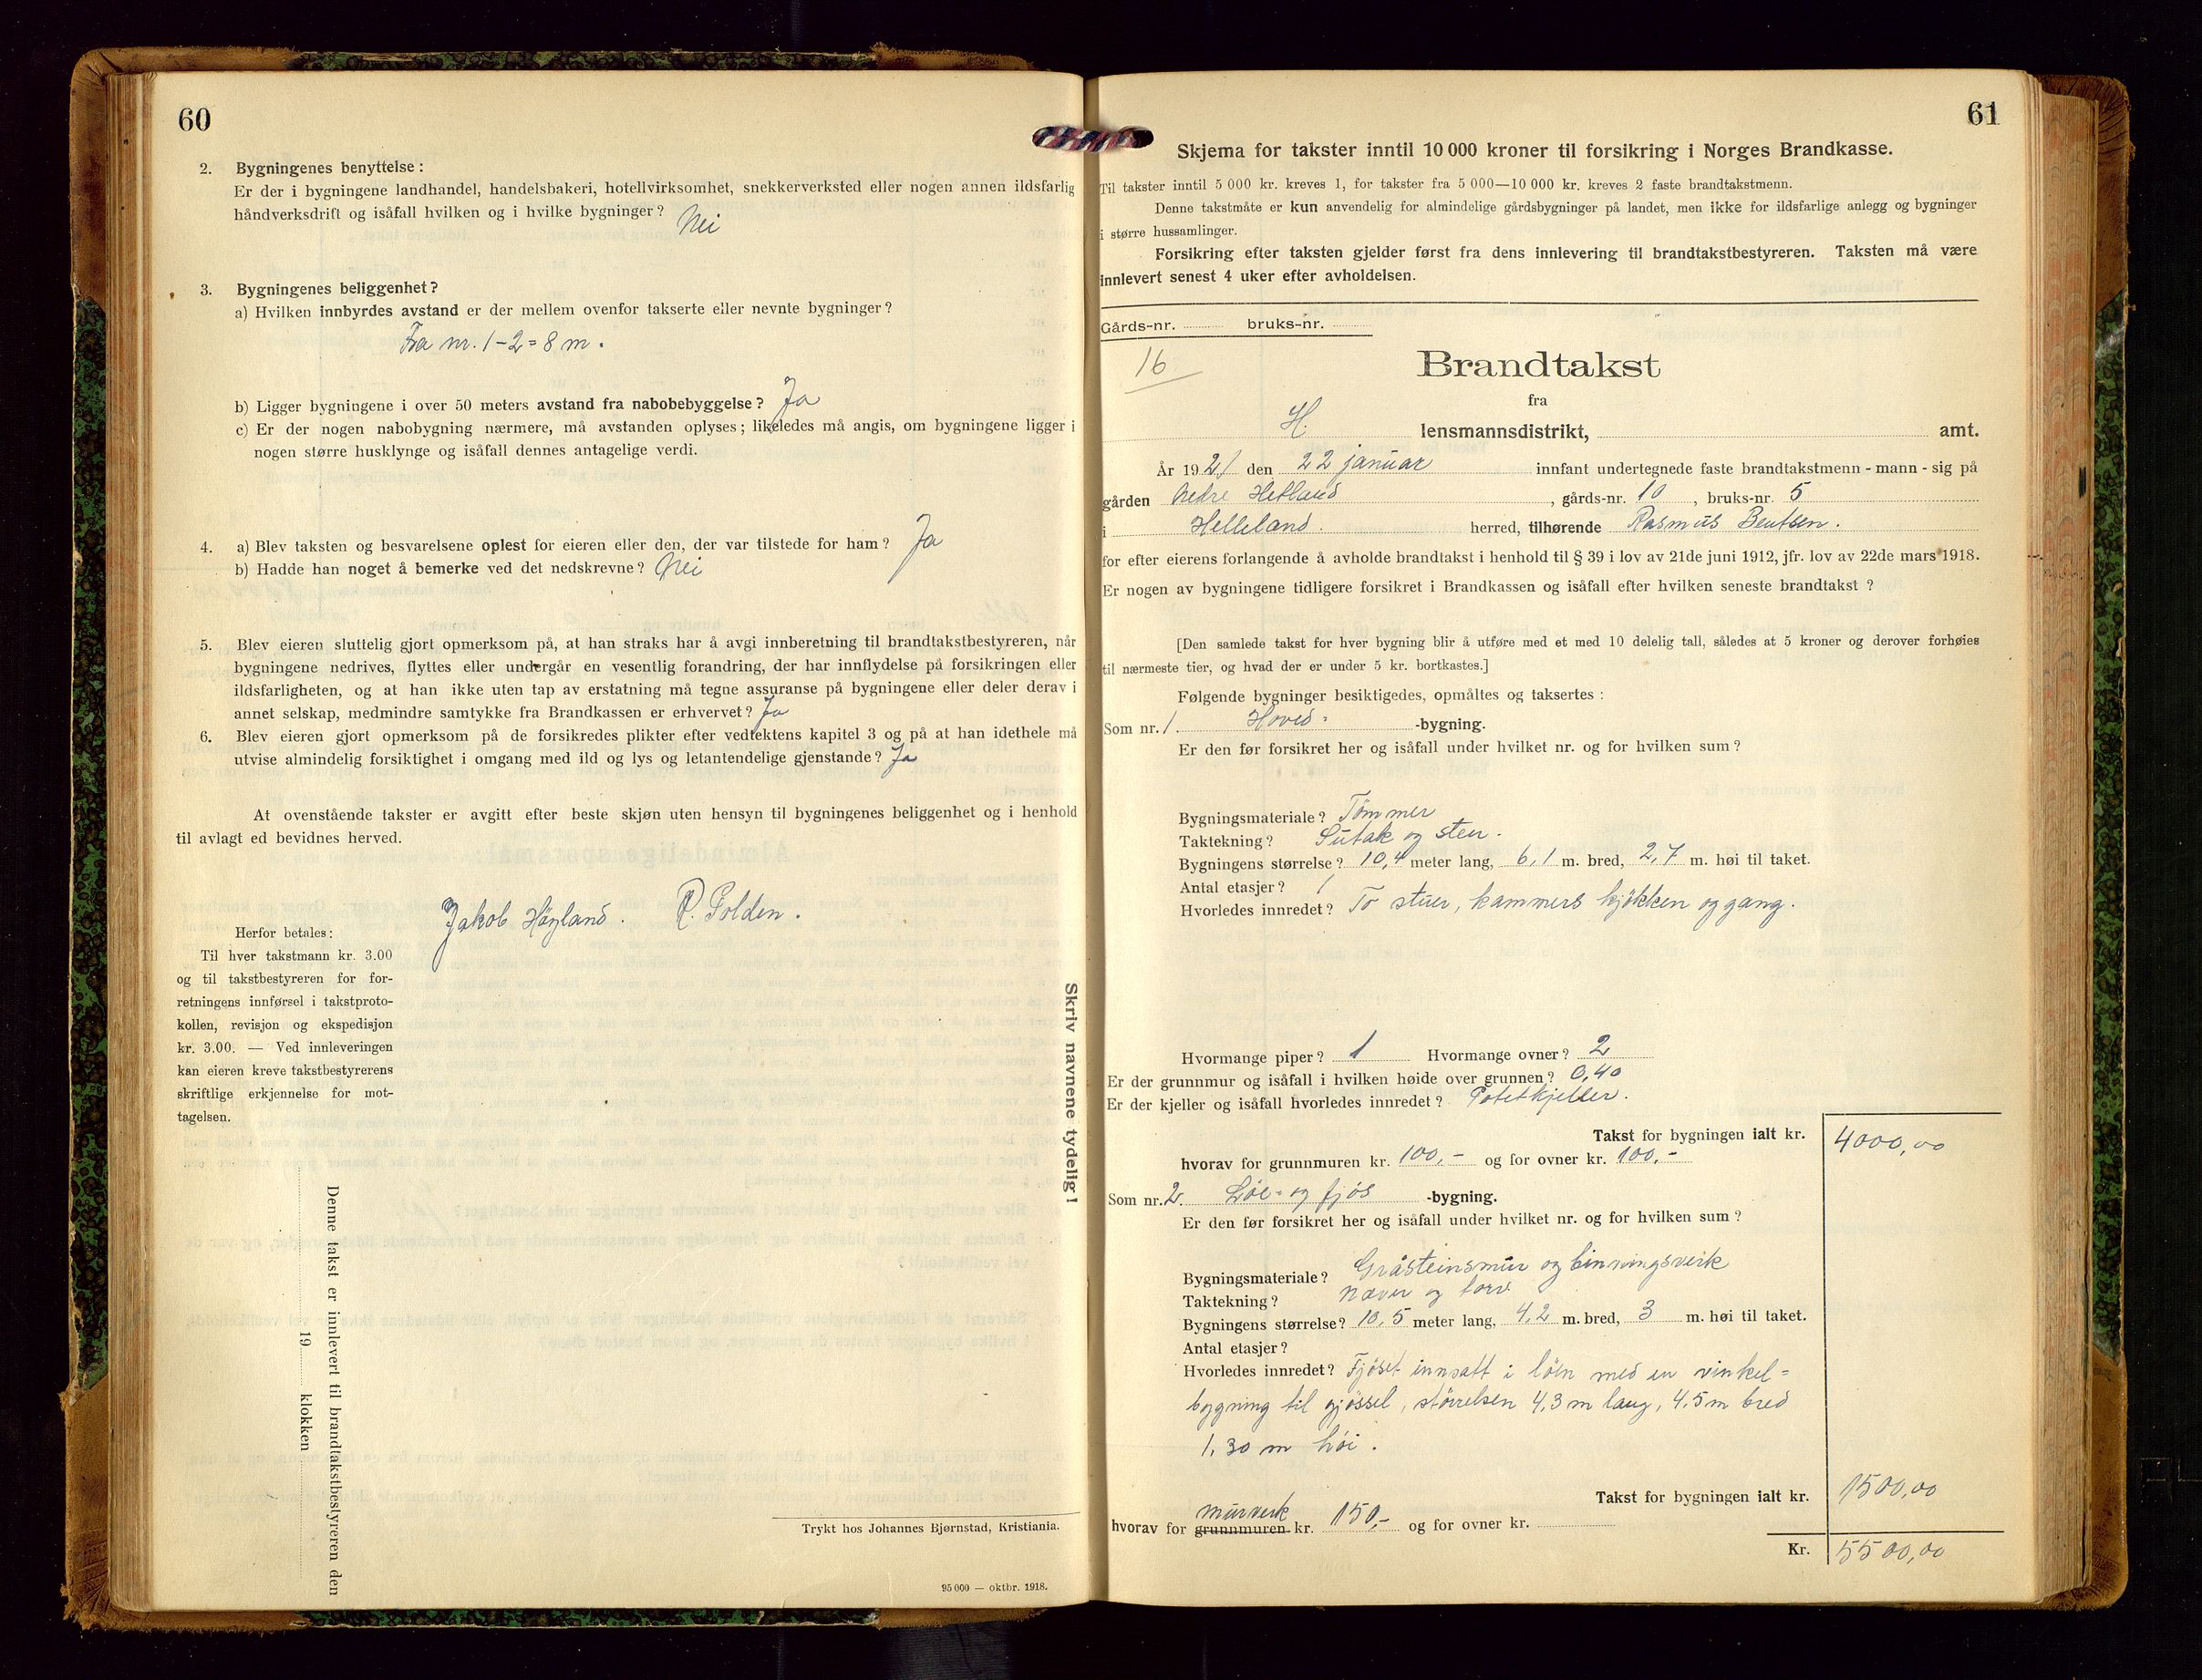 60
2. Bygningenes benyttelse:
Er der i bygningene landhandel, handelsbakeri, hotellvirksomhet, snekkerverksted eller nogen annen ildsfarlig
håndverksdrift og isåfall hvilken og i hvilke bygninger? Nei
3. Bygningenes beliggenhet?
a) Hvilken innbyrdes avstand er der mellem ovenfor takserte eller nevnte bygninger?
Fra nr. 1-2=8 m.
b) Ligger bygningene i over 50 meters avstand fra nabobebyggelse? Ja
c) Er der nogen nabobygning nærmere, må avstanden oplyses; likeledes må angis, om bygningene ligger i
nogen større husklynge og isåfall dennes antagelige verdi.
4. a) Blev taksten og besvarelsene oplest for eieren eller den, der var tilstede for ham? Ja
b) Hadde han noget å bemerke ved det nedskrevne? Nei
5. Blev eieren sluttelig gjort opmerksom på, at han straks har å avgi innberetning til brandtakstbestyreren, når
bygningene nedrives, flyttes eller undergår en vesentlig forandring, der har innflydelse på forsikringen eller
ildsfarligheten, og at han ikke uten tap av erstatning må tegne assuranse på bygningene eller deler derav i
annet selskap, medmindre samtykke fra Brandkassen er erhvervet? Ja
6. Blev eieren gjort opmerksom på de forsikredes plikter efter vedtektens kapitel 3 og på at han idethele må
utvise almindelig forsiktighet i omgang med ild og lys og letantendelige gjenstande? Ja
At ovenstående takster er avgitt efter beste skjøn uten hensyn til bygningenes beliggenhet og i henhold
til avlagt ed bevidnes herved.
Jakob Høyland. R. Polden.
Herfor betales:
Til hver takstmann kr. 3.00
og til takstbestyreren for for-
retningens innførsel i takstproto-
kollen, revisjon og ekspedisjon
kr. 3.00. — Ved innleveringen
kan eieren kreve takstbestyrerens
skriftlige erkjennelse for mot-
tagelsen.
Skriv navnene tydelig!
Denne takst er innlevert til brandtakstbestyreren den
19 klokken
Trykt hos Johannes Bjørnstad, Kristiania.
95 000 — oktbr. 1918.
61
Skjema for takster inntil 10 000 kroner til forsikring i Norges Brandkasse.
Til takster inntil 5 000 kr. kreves 1, for takster fra 5 000—10 000 kr. kreves 2 faste brandtakstmenn.
Denne takstmåte er kun anvendelig for almindelige gårdsbygninger på landet, men ikke for ildsfarlige anlegg og bygninger
i større hussamlinger.
Forsikring efter taksten gjelder først fra dens innlevering til brandtakstbestyreren. Taksten må være
innlevert senest 4 uker efter avholdelsen.
Gårds-nr. bruks-nr.
16
Brandtakst
fra
H. lensmannsdistrikt, amt.
År 1921 den 22 januar innfant undertegnede faste brandtakstmenn - mann - sig på
gården Nedre Hetland, gårds-nr. 10, bruks-nr. 5
i Helleland. herred, tilhørende Rasmus Bentsen.
for efter eierens forlangende å avholde brandtakst i henhold til § 39 i lov av 21de juni 1912, jfr. lov av 22de mars 1918.
Er nogen av bygningene tidligere forsikret i Brandkassen og isåfall efter hvilken seneste brandtakst?
[Den samlede takst for hver bygning blir å utføre med et med 10 delelig tall, således at 5 kroner og derover forhøies
til nærmeste tier, og hvad der er under 5 kr. bortkastes.]
Følgende bygninger besiktigedes, opmåltes og taksertes:
Som nr. 1. Hoved- -bygning.
Er den før forsikret her og isåfall under hvilket nr. og for hvilken sum?
Bygningsmateriale? Tømmer
Taktekning? Sutak og sten.
Bygningens størrelse? 10,4 meter lang, 6,1 m. bred, 2,7 m. høi til taket.
Antal etasjer? 1
Hvorledes innredet? To stuer, kammers kjøkken og gang.
Hvormange piper? 1 Hvormange ovner? 2
Er der grunnmur og isåfall i hvilken høide over grunnen? 0,40
Er der kjeller og isåfall hvorledes innredet? Potetkjeller.
Takst for bygningen ialt kr. 4000,00
hvorav for grunnmuren kr. 100,- og for ovner kr. 100,-
Som nr. 2. Løe- og fjøs -bygning.
Er den før forsikret her og isåfall under hvilket nr. og for hvilken sum?
Bygningsmateriale? Gråsteinsmur og binningsverk
Taktekning? Næver og torv
Bygningens størrelse? 10,5 meter lang, 4,2 m. bred, 3 m. høi til taket.
Antal etasjer?
Hvorledes innredet? Fjøset innsatt i løen med en vinkel=
bygning til gjøssel, størrelsen 4,3 m lang, 4,5 m bred
1,30 m høi.
Takst for bygningen ialt kr. 1500,00
murverk
hvorav for grunnmuren kr. 150,- og for ovner kr.
Kr. 5500,00